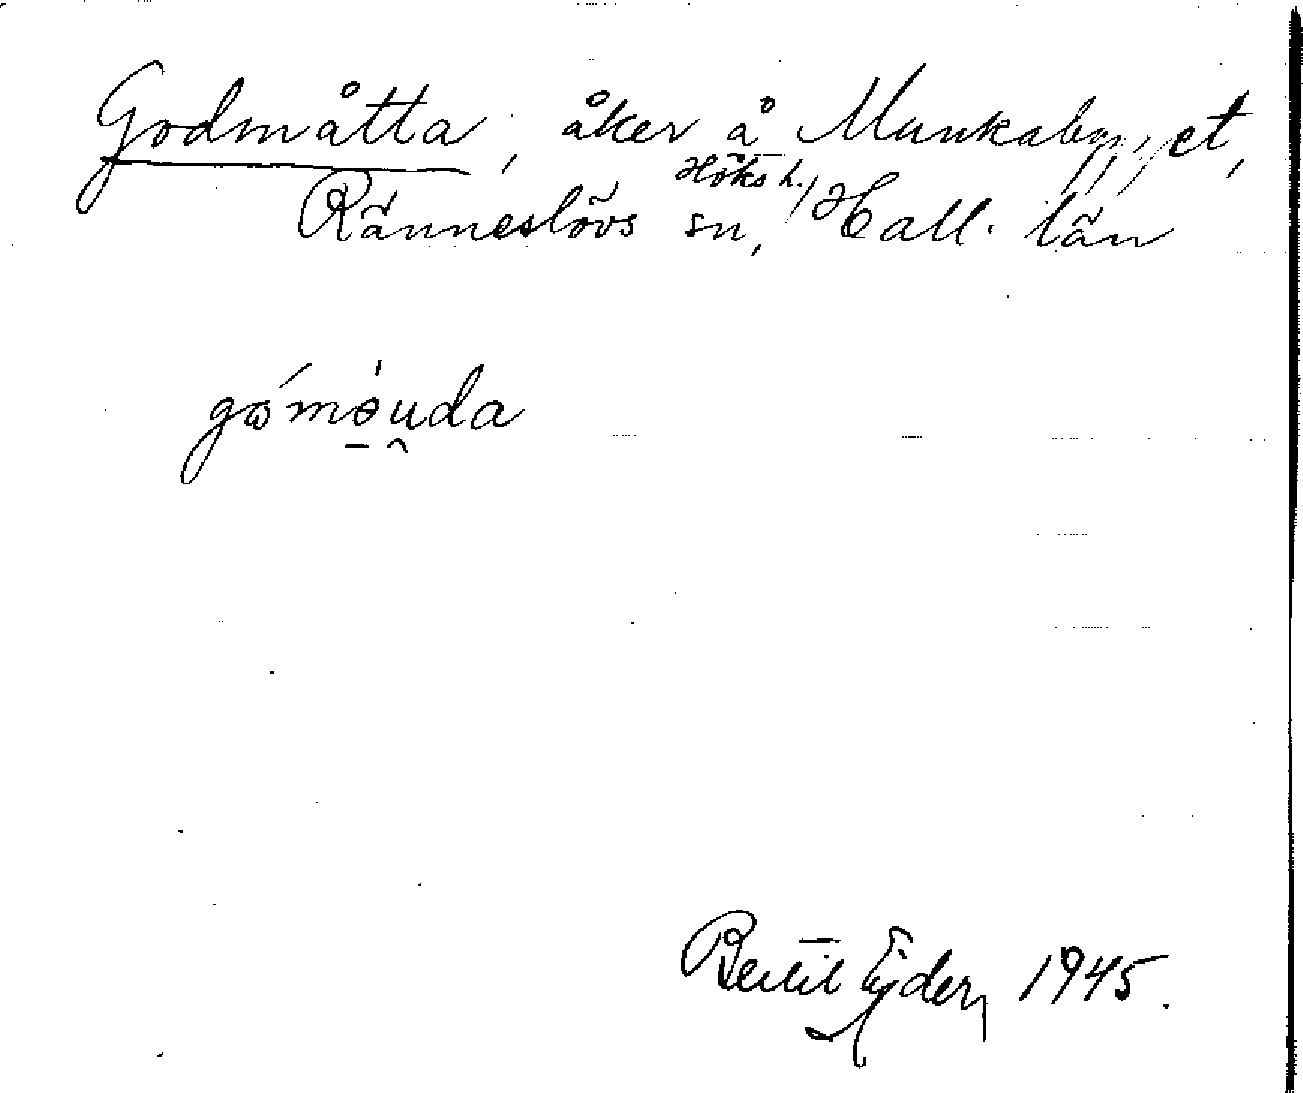 Godmåtta, åker å Munkaby, et,
Ränneslövs sn, Höks h. Hall. län
gómö́uda
Bertil Ejder, 1945.